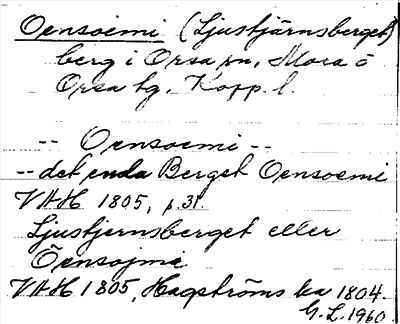 Oensoemi (Ljustjärnsberget)
berg i Orsa sn, Mora o
Orsa tg. Kopp. l.
-- Oensoemi --
-- det enda Berget Oensoemi
VAH 1805, p. 31.
Ljustjernsberget eller
Öensojmi
VAH 1805, Hagströms ka 1804.
G. L. 1960.